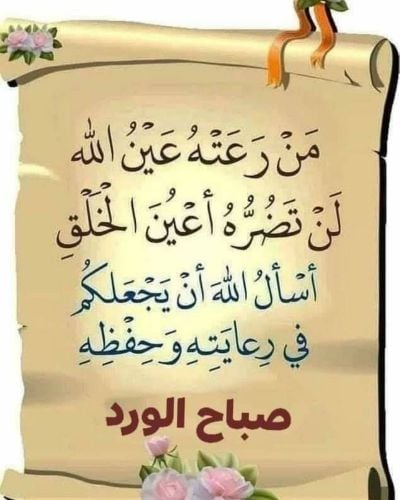 مَنْ رَعَتْهُ عَيْنُ الله
لَنْ تَضُرُّهُ أعْيُنَ الْخَلْقِ
أسْألُ اللهَ أنْ يَجْعَلَكُم
في رِعايَتِهِ وَحِفْظِهِ
صباح الورد